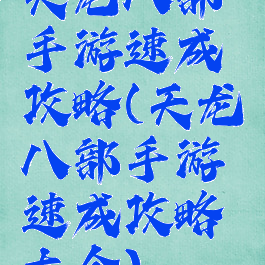 天龙八部
手游速成
攻略(天龙
八部手游
速成攻略
大全)